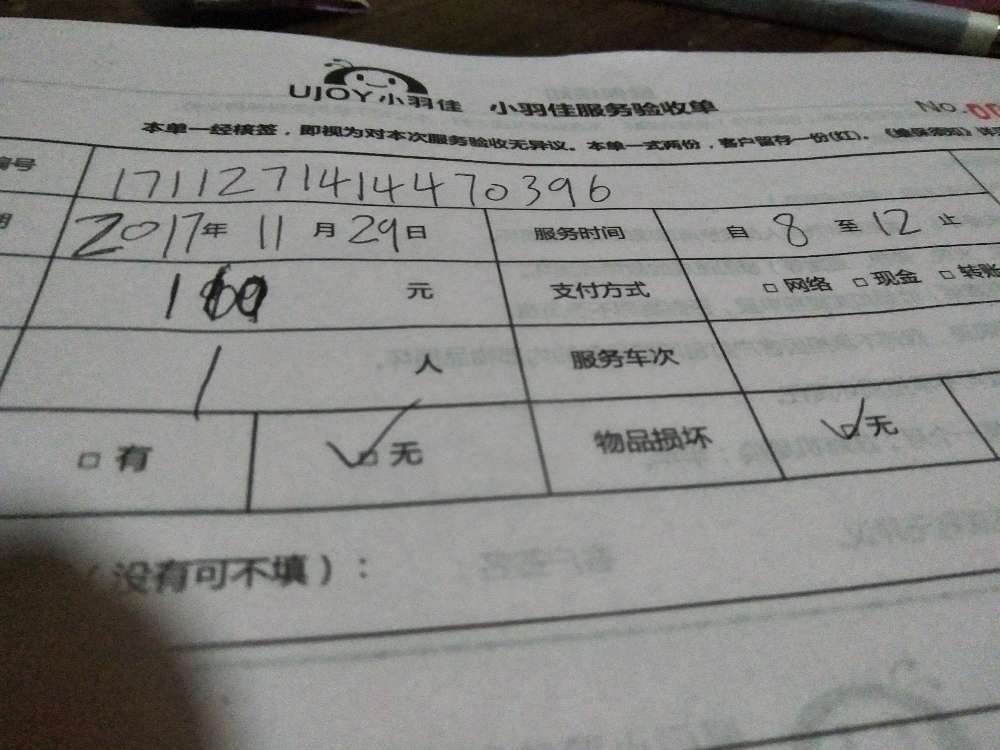 UJOY小羽佳 小羽佳服务验收单 No.
本单一经核签，即视为对本次服务验收无异议。本单一式两份，客户留存一份(红)。《维保须知》
编号 17112714144470396
期 2017年 11月 29日 服务时间 自 8 至 12 止
元 支付方式 □ 网络 □ 现金 □ 转账
1 人 服务车次
□ 有 □ 无 物品损坏 □ 无
（没有可不填）：
客户签名：